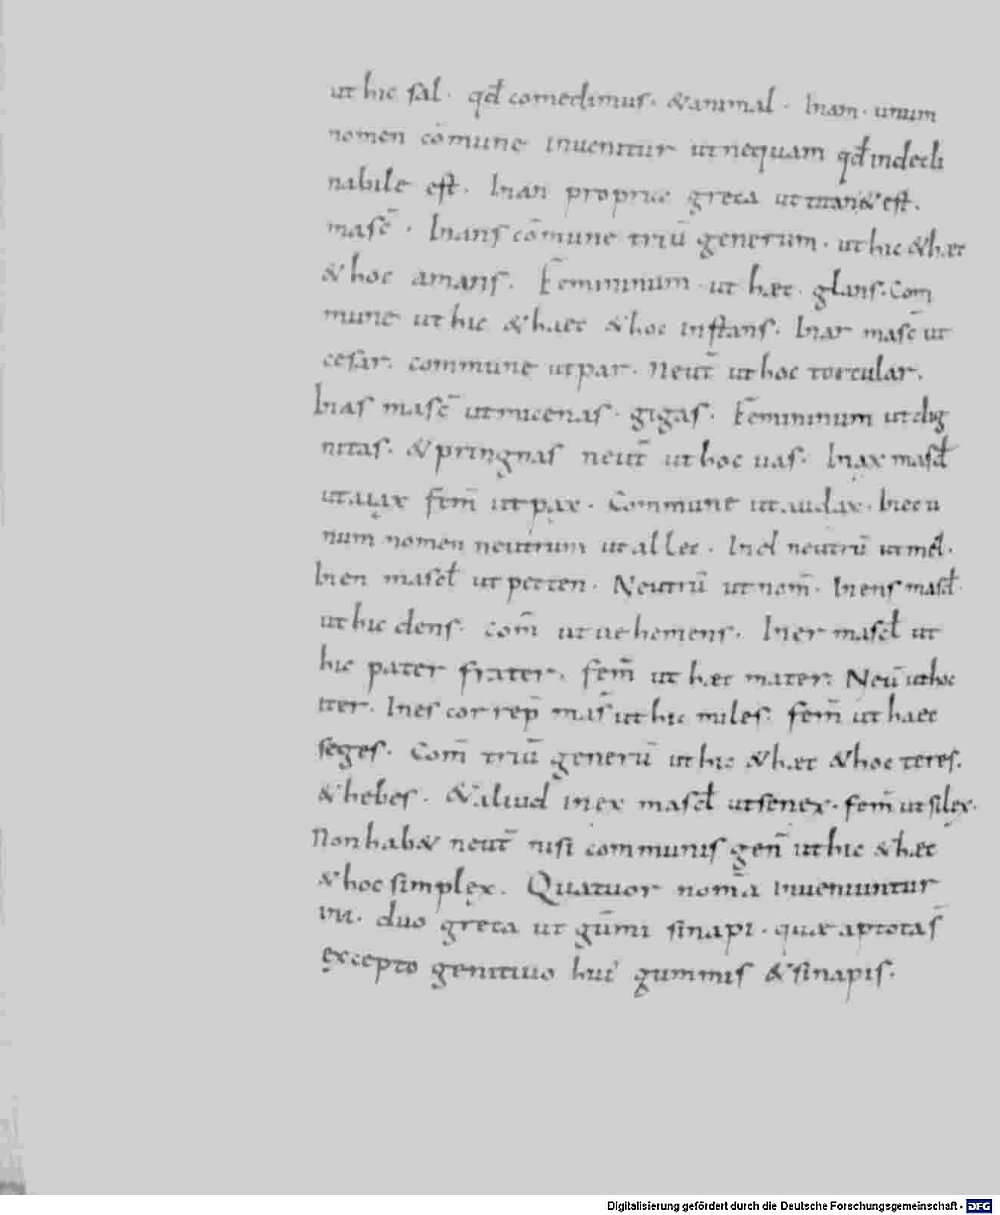 ut hic sal · qđ comedimus · & animal · Inam · unum
nomen cōmune inuenitur ut nequam qđ indecli
nabile est . Inan proprie greca ut titan & est .
masc̄ · Inans cōmune triū generum · ut hic & hæc
& hoc amans . Femininum · ut hæc · glans . Com
mune ut hic & haec & hoc instans . Inar masc̄ ut
cesar . commune ut par . Neut̄ ut hoc torcular .
Inas masc̄ ut micenas · gigas . Femininum ut dig
nitas . & pringnas neut̄ ut hoc uas . Inax mascł
ut aiax fem̄ ut pax . Commune ut audax . Inec u
num nomen neutrum ut allec . Inel neutrū ut mel .
Inen mascł ut pecten . Neutrū ut nom̄ . Inens mascł
ut hic dens . com̄ ut uehemens . Iner mascł ut
hic pater frater . fem̄ ut hæc mater . Neū ut hoc
iter . Ines correp̄ mas̄ ut hic miles . fem̄ ut haec
seges . Com̄ triū generū ut hic & hæc & hoc teres .
& hebes . & aliud inex mascł ut senex . fem̄ ut silex .
Non hab& neut̄ nisi communis gen̄ ut hic & hæc
& hoc simplex . Quatuor nom̄a inueniuntur
ini . duo greca ut gūmi sinapi . quæ aptotas̄
excepto genitiuo gummis & sinapis .
Digitalisierung gefördert durch die Deutsche Forschungsgemeinschaft - DFG